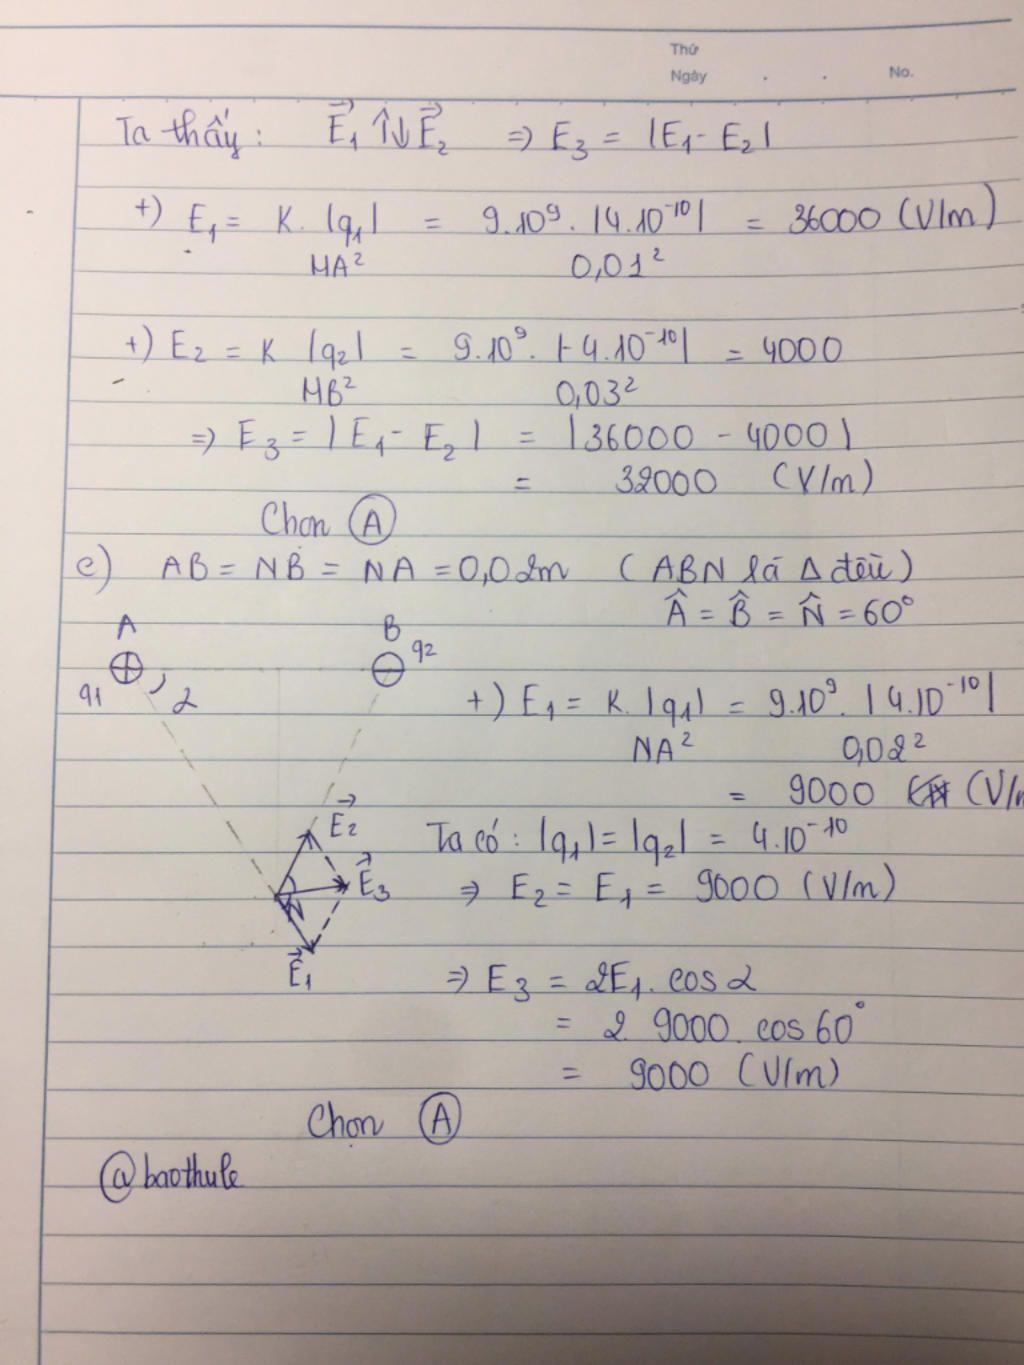 Thứ
Ngày . . No.
Ta thấy: E₁→ ↑↓ E₂→ => E₃ = |E₁ - E₂|
+) E₁ = K. |q₁| = 9.10⁹. |4.10⁻¹⁰| = 36000 (V/m)
MA² 0,01²
+) E₂ = K |q₂| = 9.10⁹. |-4.10⁻¹⁰| = 4000
MB² 0,03²
=> E₃ = |E₁ - E₂| = |36000 - 4000|
= 32000 (V/m)
Chọn A
e) AB = NB = NA = 0,02m (ABN là Δ đều)
Â = B̂ = N̂ = 60°
A B
q₁ α q₂
+) E₁ = K. |q₁| = 9.10⁹. |4.10⁻¹⁰|
NA² 0,02²
= 9000 (V/m
E₂→
Ta có: |q₁| = |q₂| = 4.10⁻¹⁰
E₃→
=> E₂ = E₁ = 9000 (V/m)
N
E₁→
=> E₃ = 2E₁. cos α
= 2 9000. cos 60°
= 9000 (V/m)
Chọn A
@baothule